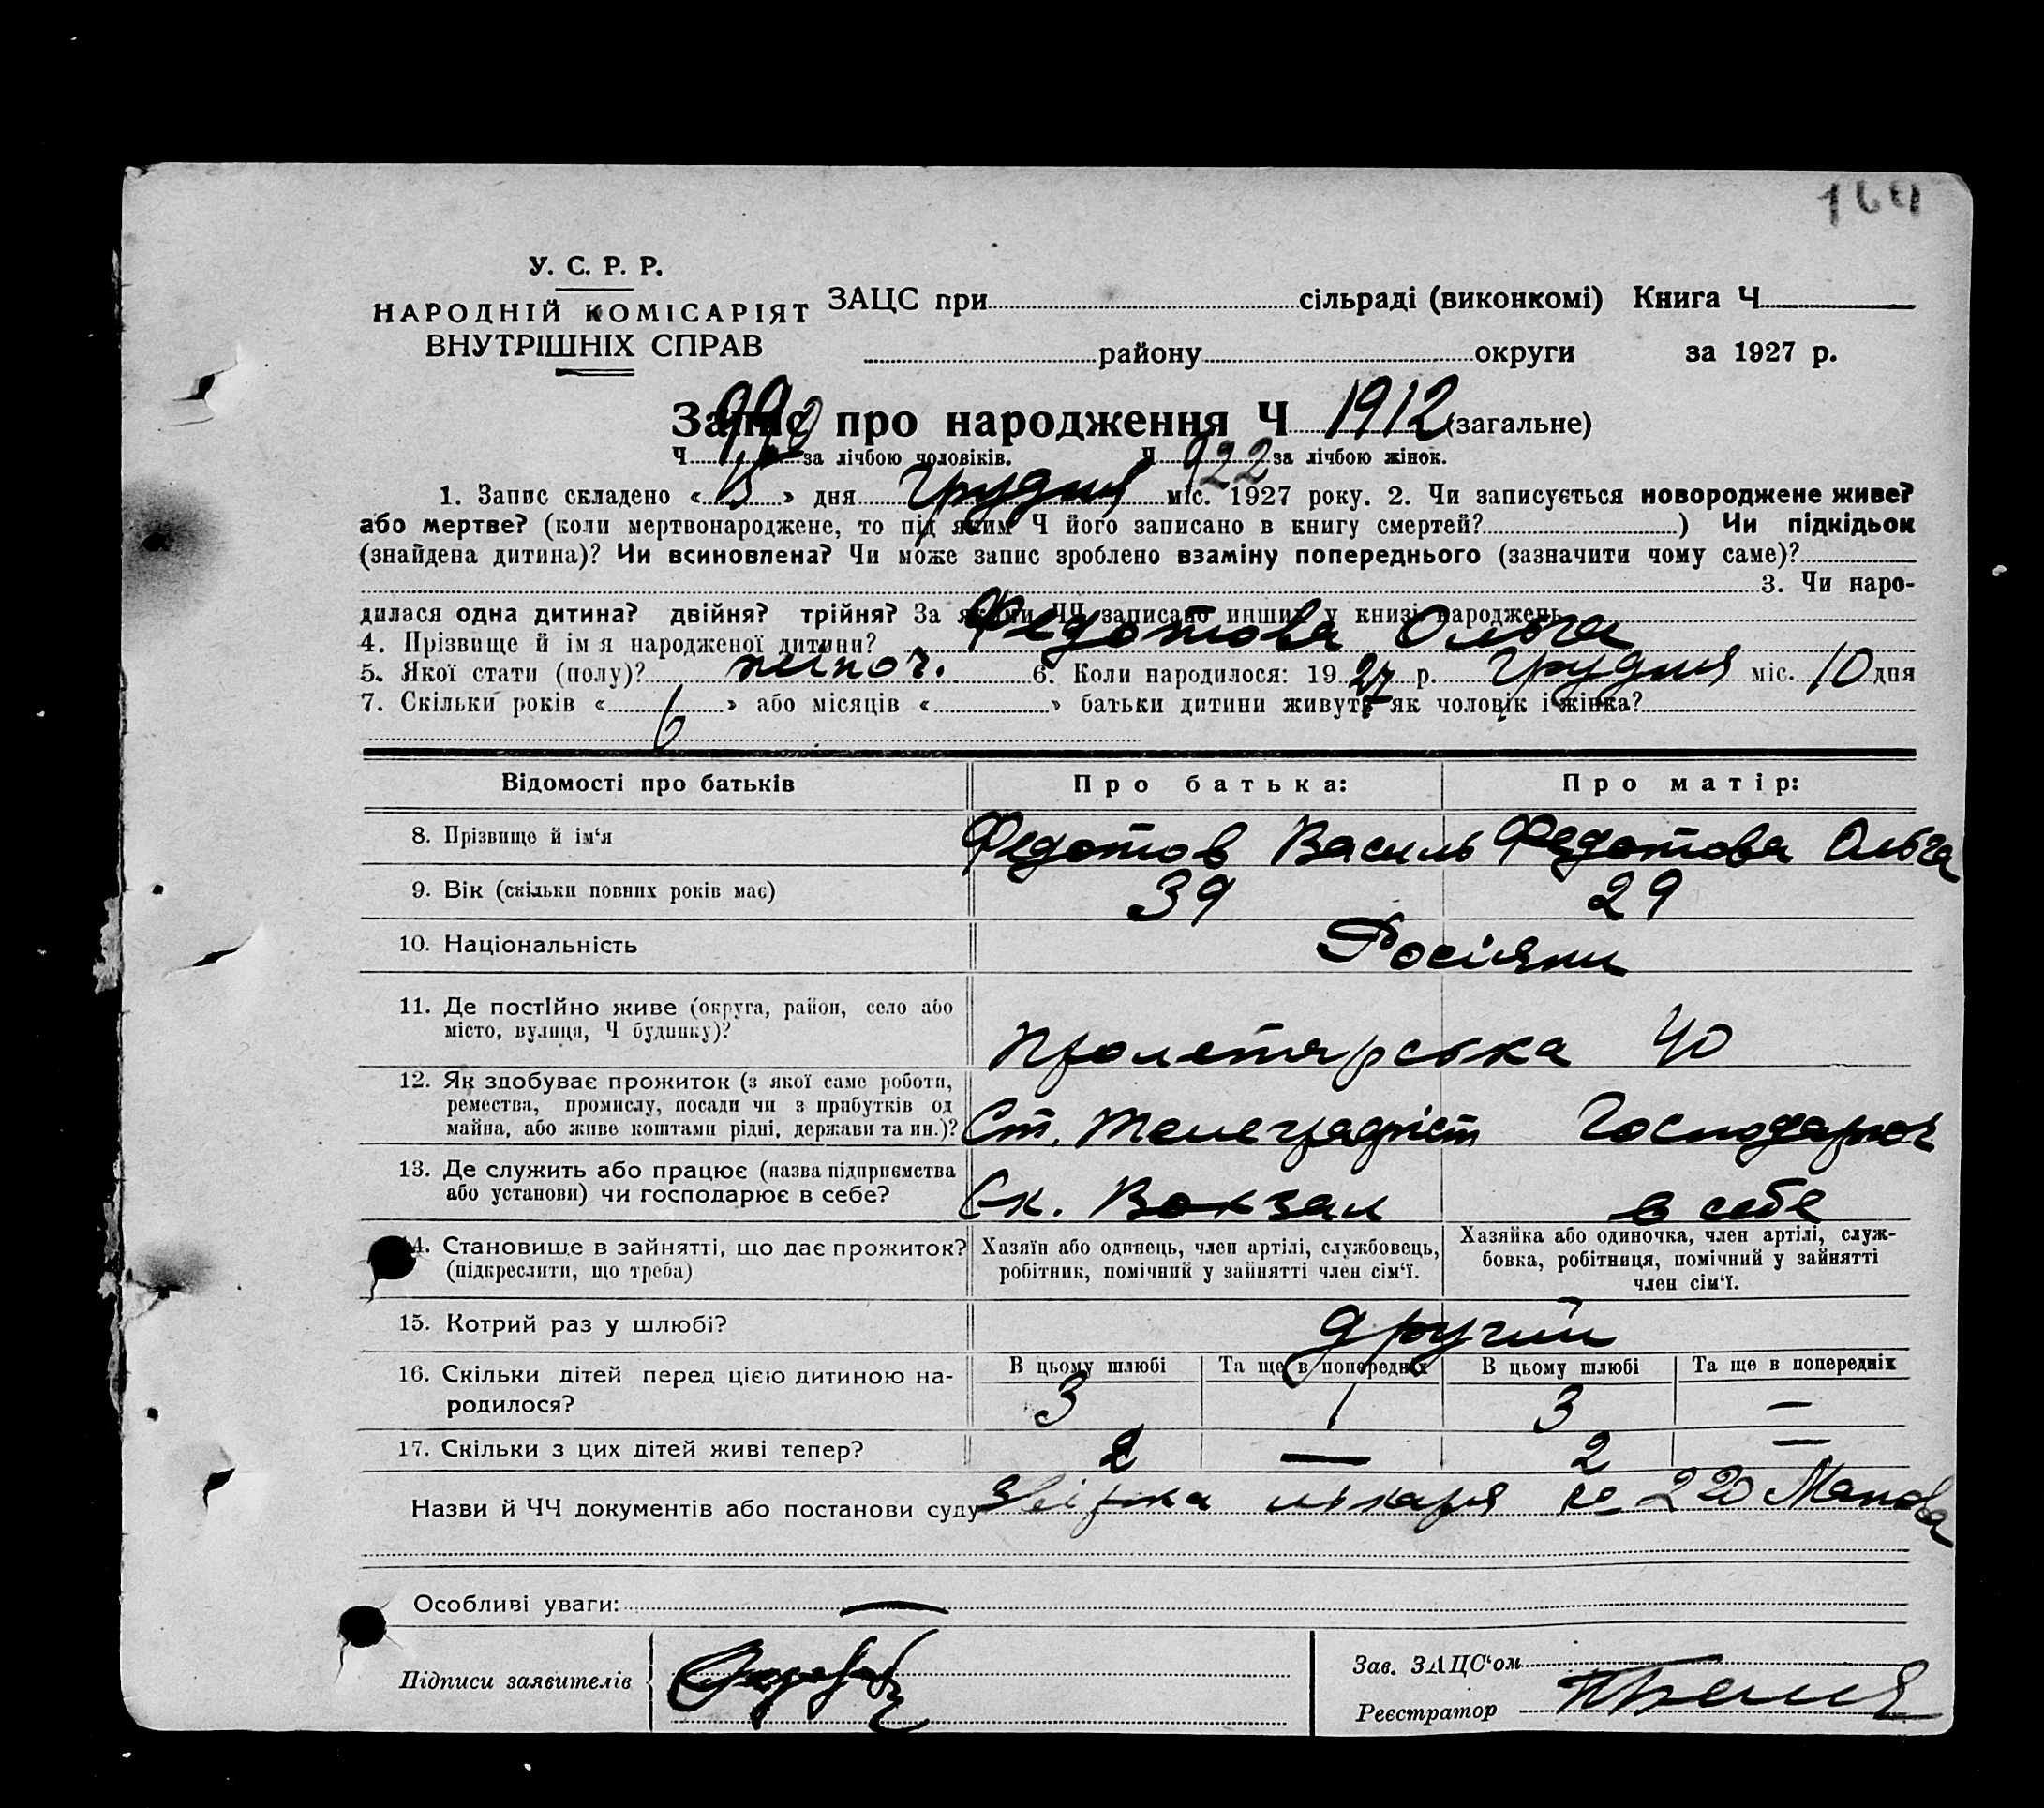 164
У. С. Р. Р.
НАРОДНІЙ КОМІСАРІЯТ
ВНУТРІШНІХ СПРАВ
ЗАЦС при сільраді (виконкомі) Книга Ч
району округи за 1927 р.
Запис про народження Ч 1912 (загальне)
990
Ч за лічбою чоловіків. Ч 922 за лічбою жінок.
1. Запис складено « 15 » дня Грудня міс. 1927 року. 2. Чи записується новороджене живе?
або мертве? (коли мертвонароджене, то під яким Ч його записано в книгу смертей? ) Чи підкідьок
(знайдена дитина)? Чи всиновлена? Чи може запис зроблено взаміну попереднього (зазначити чому саме)?
3. Чи наро-
дилася одна дитина? двійня? трійня? За якими ЧЧ записано инших у книзі народжень
4. Прізвище й ім я народженої дитини? Федотова Ольга
5. Якої стати (полу)? жіноч. 6. Коли народилося: 1927 р. Грудня міс. 10 дня
7. Скільки років « 6 » або місяців « » батьки дитини живуть як чоловік і жінка?
Відомості про батьків Про батька: Про матір:
8. Прізвище й ім‘я Федотов Василь Федотова Ольга
9. Вік (скільки повних років має) 39 29
10. Національність Росіяни
11. Де постійно живе (округа, район, село або
місто, вулиця, Ч будинку)? Пролетарська 40
12. Як здобуває прожиток (з якої саме роботи,
ремества, промислу, посади чи з прибутків од
майна, або живе коштами рідні, держави та ин.)? Ст. Телеграфіст Господарює
13. Де служить або працює (назва підприємства
або установи) чи господарює в себе? Ск. Вокзал в себе
14. Становище в зайнятті, що дає прожиток?
(підкреслити, що треба)
Хазяїн або одинець, член артілі, службовець,
робітник, помічний у зайнятті член сім‘ї.
Хазяйка або одиночка, член артілі, служ-
бовка, робітниця, помічний у зайнятті
член сім‘ї.
15. Котрий раз у шлюбі? другий
16. Скільки дітей перед цією дитиною на-
родилося?
В цьому шлюбі Та ще в попередніх В цьому шлюбі Та ще в попередніх
3 1 3 —
17. Скільки з цих дітей живі тепер? 2 — 2 —
Назви й ЧЧ документів або постанови суду лікаря 220
Особливі уваги: —
Підписи заявителів
Зав. ЗАЦС‘ом
Реєстратор